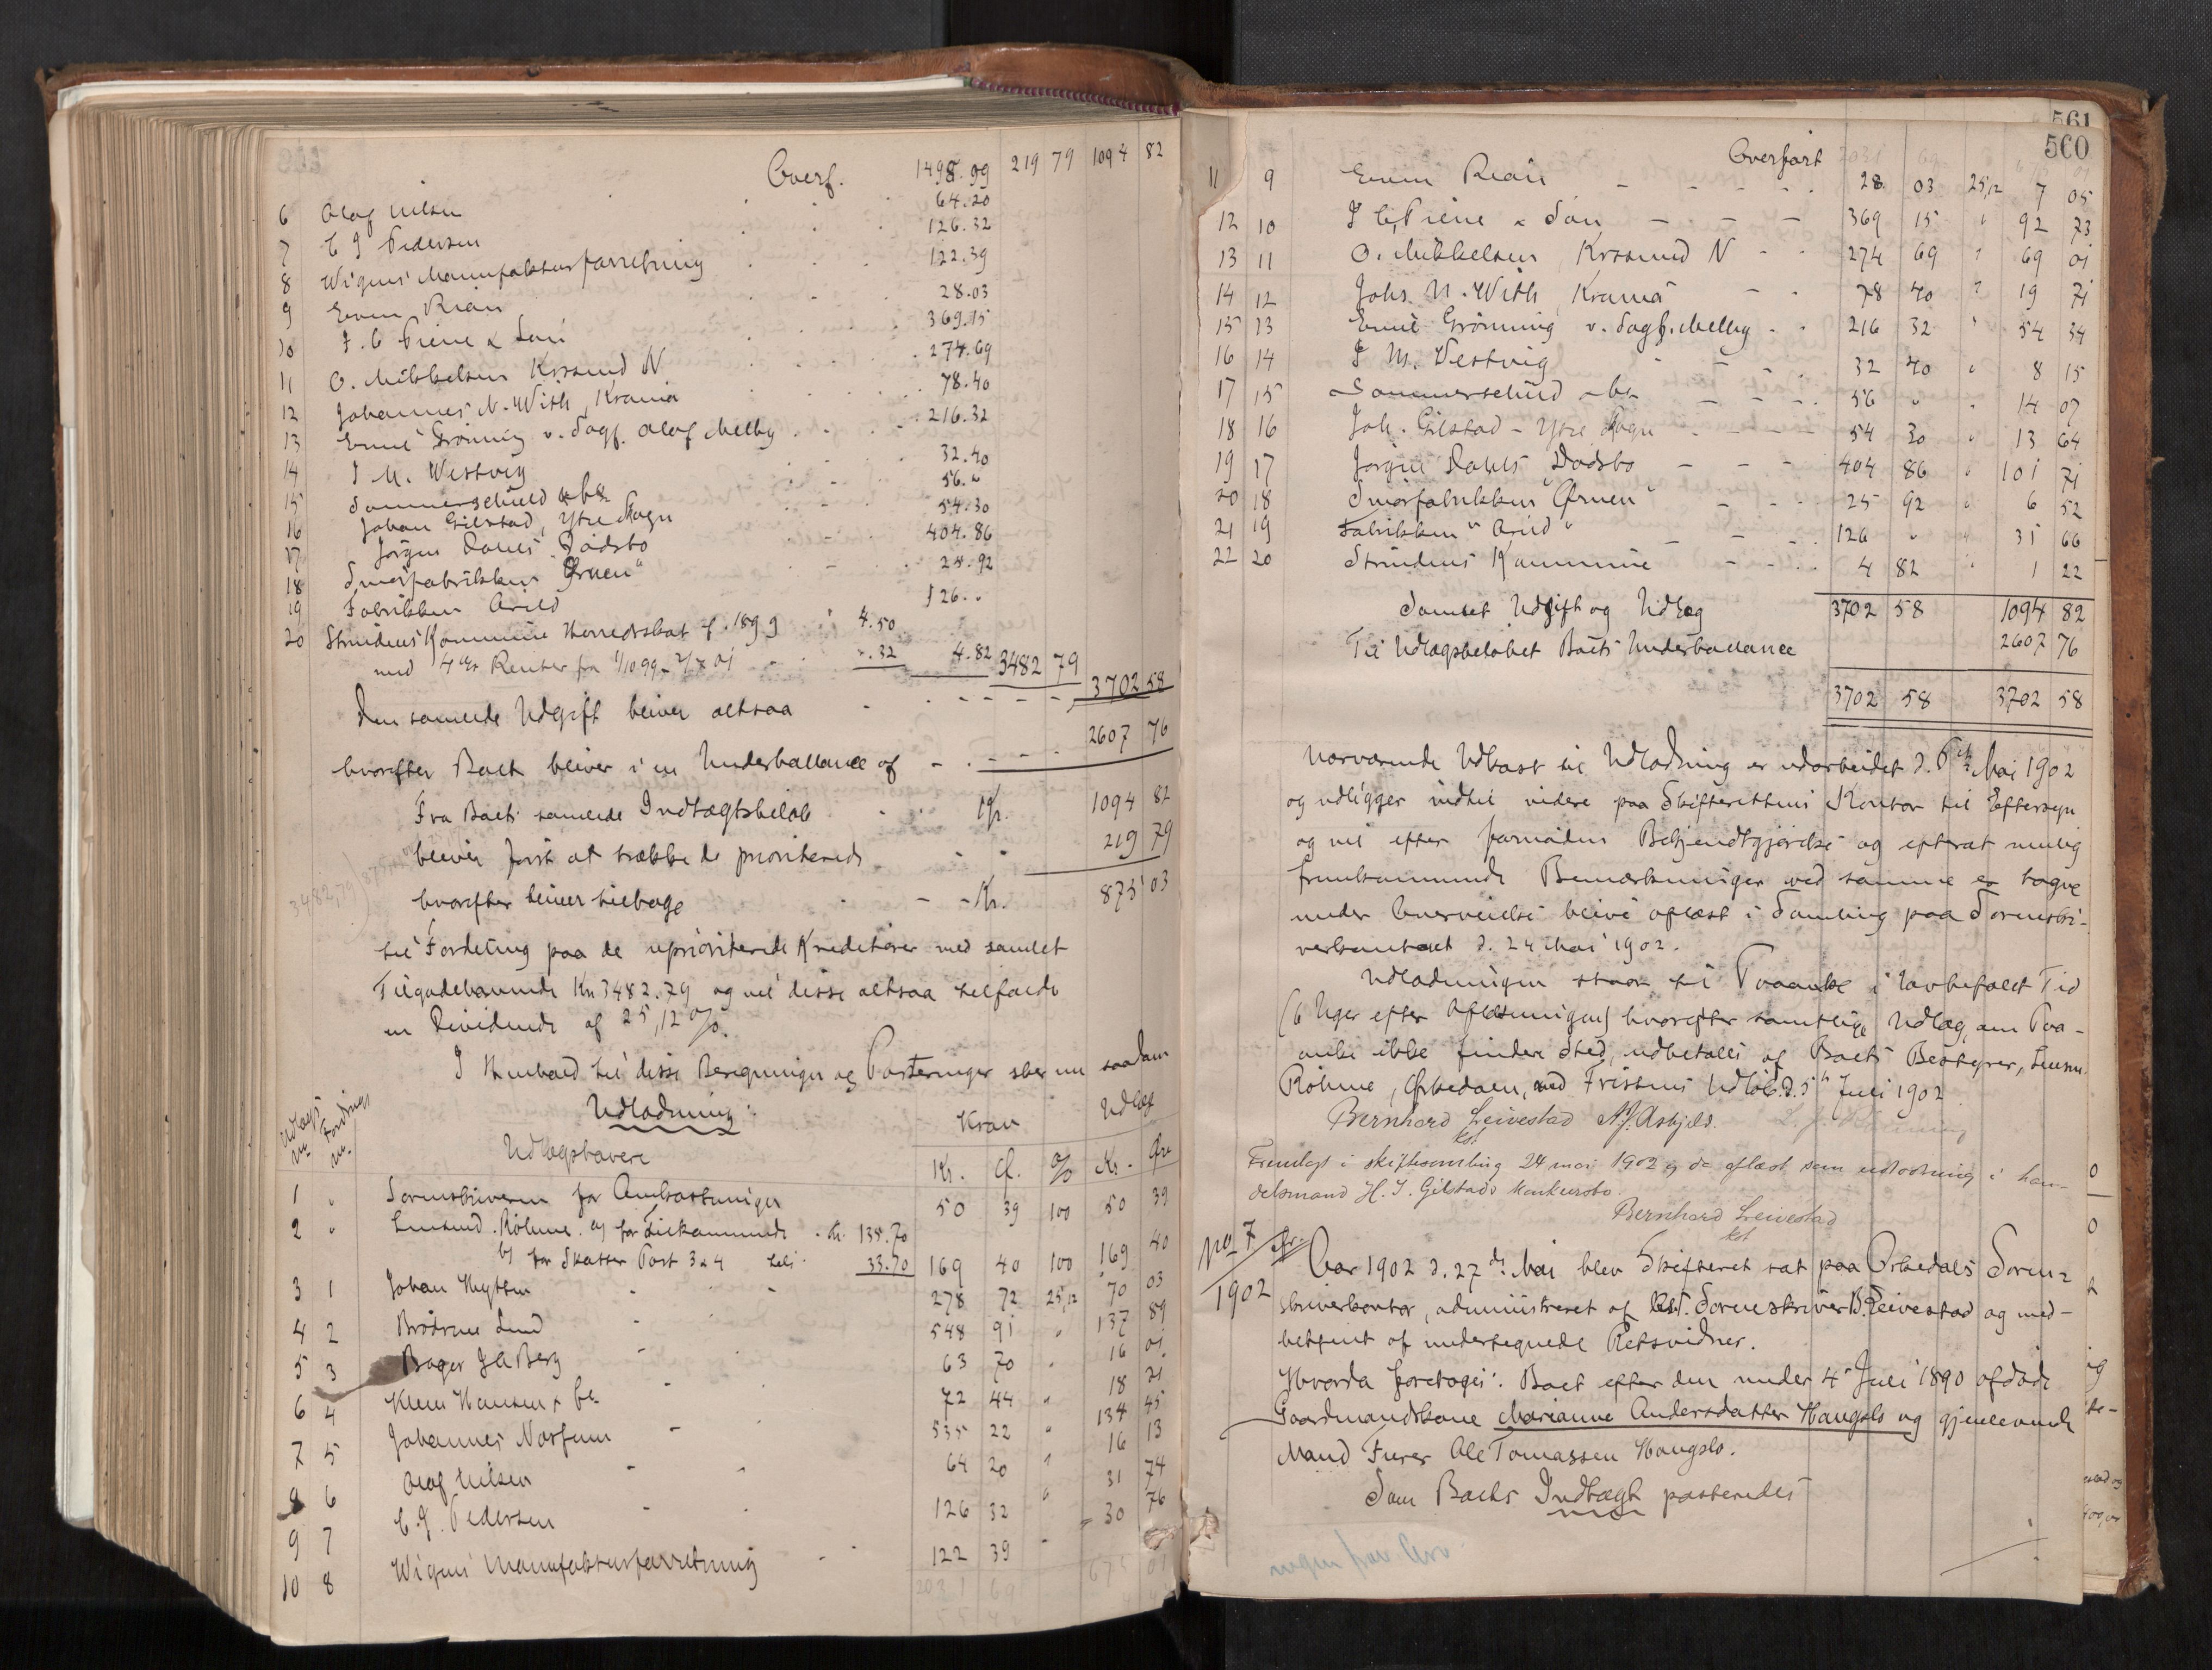 Overf. 1498.99 219 79 1094 82
6 Olaf Nilsen . . 64.20
7 C J Pedersen . . 126.32
8 Wigens Manufakturforretning . . 122.39
9 Even Riain . . 28.03
10 J. C Piene & Søn . . 369.15
11 O. Mikkelsen Krsund N . . 274.69
12 Johannes N. With, Krania . . 78.40
13 Emil Grönning v. Sagf. Olaf Melby . . 216.32
14 J M. Westvig . . 32.40
15 Sommerschield & Co . . 56. "
16 Johan Gilstad, Ytre Skogn . . 54.30
17 Jørgen Dahls Dødsbo . . 404.86
18 Smørfabrikken "Ørnen" . . 25.92
19 Fabrikken Arild . . 126. "
20 Strindens Kommune Herredsskat f. 1899 4.50
med 4 % Renter fra 1/10 99 - 2/7 01 ". 32 4.82 3482 79
Den samlede Udgift bliver altsaa - - - - 3702 58
hvorefter Boet bliver i en Underballance af - - - 2607 76
Fra Boets samlede Indtægtsbeløb . . Kr. 1094 82
bliver først at trække de prioriterede . . 219 79
3482,79) 875
hvorefter bliver tilbage - - Kr. 875 03
til Fordeling paa de uprioriterede Kreditorer med samlet
Tilgodehavende Kr 3482.79 og vil disse altsaa tilfalde
en Dividende af 25,12 %.
I Henhold til disse Beregninger og Posteringer sker nu saadan
Udlodning:
Udlægs No Fordrings No. Udlægshavere Krav Udlæg
Kr. Ø. % Kr. Øre
1 " Sorenskriveren for Ombostninger 50 39 100 50 39
2 " Lensmd. Röhme a) for Tilkommende . Kr. 135.70
b) for Skatter Post 3 & 4 tils. 33.70 169 40 100 169 40
3 1 Johan Nyttsen - - 278 72 25,12 70 03
4 2 Brødrene Lund - 548 91 " 137 89
5 3 Bager J A Berg - 63 70 " 16 01
6 4 Klaus Hansen & Co - 72 44 " 18 21
7 5 Johannes Norfum - 535 22 " 134 45
8 6 Olaf Nilsen - 64 20 " 16 13
9 7 C. J. Pedersen - 126 32 " 31 74
10 8 Wigens Manufakturforretning - 122 39 " 30 76
2031 69 675 01
561
560
Overført 2031 69
11 9 Even Riain - - - 28 03 25,12 7 05
12 10 J C, Piene & Søn - - - 369 15 " 92 73
13 11 O. Mikkelsen, Krsund N - - 274 69 " 69 01
14 12 Johs. N. With, Krania - - 78 40 " 19 71
15 13 Emil Grönning v. Sagf. Melby - - 216 32 " 54 34
16 14 J M. Vestvig - - 32 40 " 8 15
17 15 Sommerschield & Co - - - 56 " " 14 07
18 16 Joh. Gilstad - Ytre Skogn - - - 54 30 " 13 64
19 17 Jørgen Dahls Dødsbo - - - 404 86 " 101 71
20 18 Smørfabrikken "Ørnen" - - - 25 92 " 6 52
21 19 Fabrikken "Arild" - - - 126 " " 31 66
22 20 Strindens Kommune - - - 4 82 " 1 22
Samlet Udgift og Udlæg 3702 58 1094 82
Til Udlægsbeløbet Boets Underballance 2607 76
3702 58 3702 58
Nærværende Udkast til Udlodning er udarbeidet d. 6te Mai 1902
og udligger indtil videre paa Skifterettens Kontor til Eftersyn
og vil efter forinden Bekjendtgjørelse og efterat mulig
fremkommende Bemærkninger ved samme er tagne
under Overveielse blive oplæst i Samling paa Sorenskri-
verkontoret d. 24 Mai 1902.
Udlodningen staar til Paaanke i lovbefalet Tid
(6 Uger efter Oplæsningen) hvorefter samtlige Udlæg, om Paa-
anke ikke finder Sted, udbetales af Boets Bestyrer, Lensm.
Röhme, Orkedalen, ved Fristens Udløb d. 5te Juli 1902
Bernhard Leivestad A. J. Askjels.
kst
Fremlagt i skiftesamling 24 mai 1902 og da oplæst som udlodning i han-
delsmand H. J. Gilstads konkursbo.
Bernhard Leivestad
kst
No 7 fr.
1902
Aar 1902 d. 27de Mai blev Skifteret sat paa Orkedals Soren-
skriverkontor, administreret af Kst. Sorenskriver B. Leivestad og med-
betjent af undertegnede Retsvidner.
Hvorda foretoges: Boet efter den under 4de Juli 1890 afdøde
Gaardmandskone Marianne Andersdatter Hongslo og gjenlevende
Mand Furer Ole Tomassen Hongslo.
Som Boets Indtægt posteredes
ingen for Arv